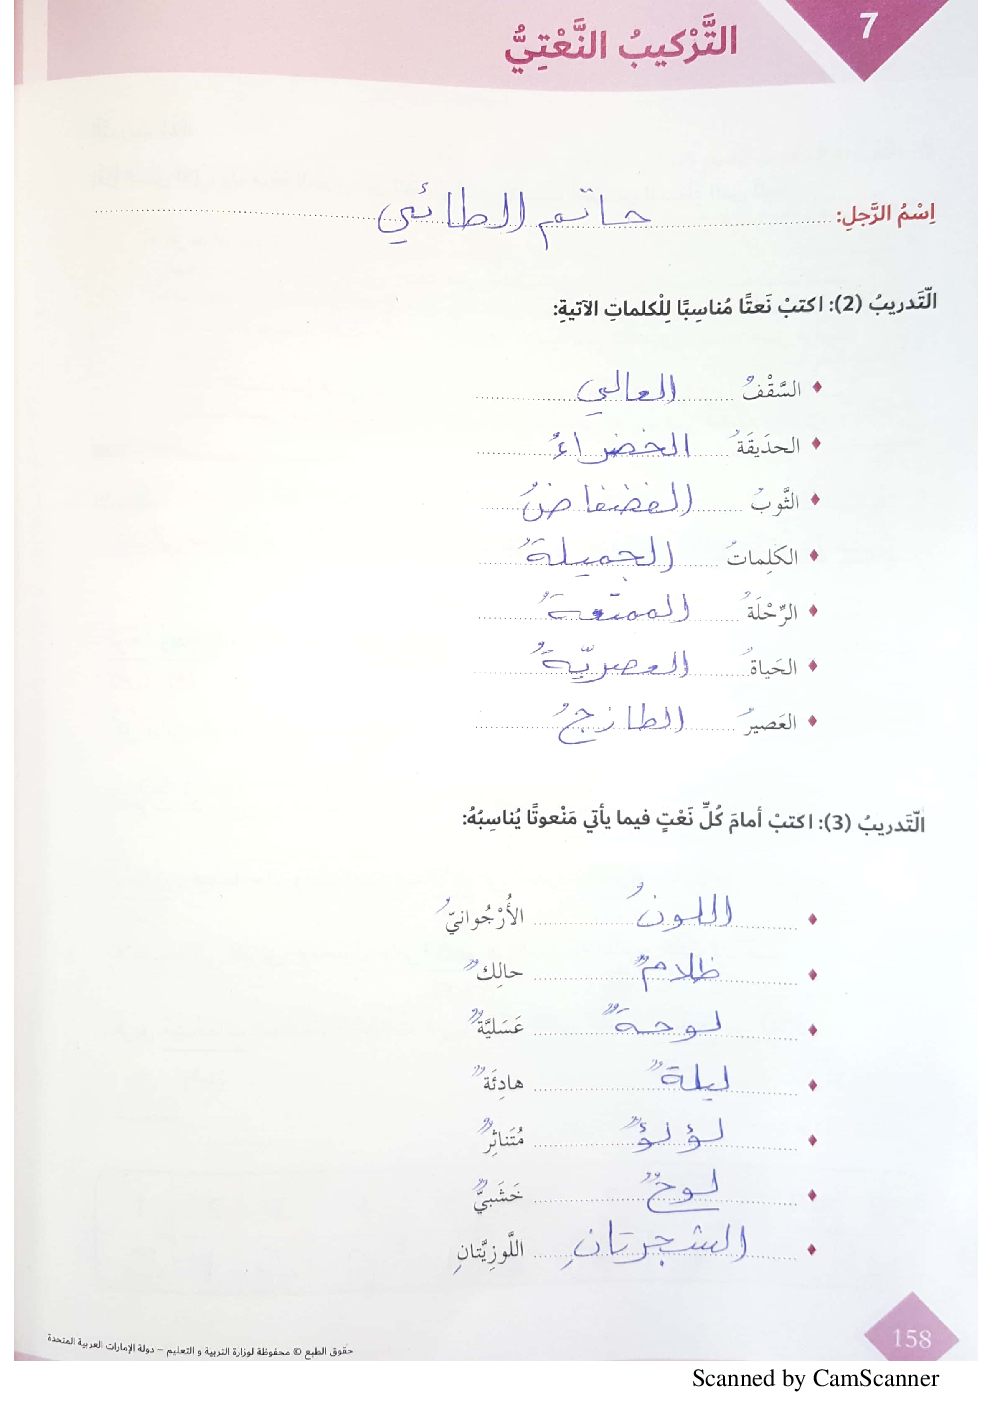 7
التَّرْكيبُ النَّعْتِيُّ
اِسْمُ الرَّجلِ: حاتم الطائي
التَّدريبُ (2): اكتبْ نَعتًا مُناسِبًا لِلْكلماتِ الآتيةِ:
♦ السَّقْفُ العالي
♦ الحدَيقَةُ الخضراءُ
♦ الثَّوبُ الفضفاضُ
♦ الكَلِماتُ الجميلةُ
♦ الرِّحْلَةُ الممتعةُ
♦ الحَياةُ العصريّةُ
♦ العَصيرُ الطازجُ
التَّدريبُ (3): اكتبْ أمامَ كُلِّ نَعْتٍ فيما يأتي مَنْعوتًا يُناسِبُهُ:
♦ اللونُ الأُرْجُوانيُّ
♦ ظلامٌ حالِكٌ
♦ لوحةٌ عَسَليَّةٌ
♦ ليلةٌ هادِئَةٌ
♦ لؤلؤٌ مُتَناثِرٌ
♦ لوحٌ خَشَبيٌّ
♦ الشجرتانِ اللَّوزِيَّتانِ
158
حقوق الطبع © محفوظة لوزارة التربية و التعليم – دولة الإمارات العربية المتحدة
Scanned by CamScanner